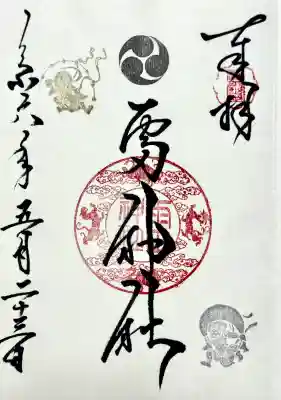 奉拝
雷神社
令和六年 五月二十三日